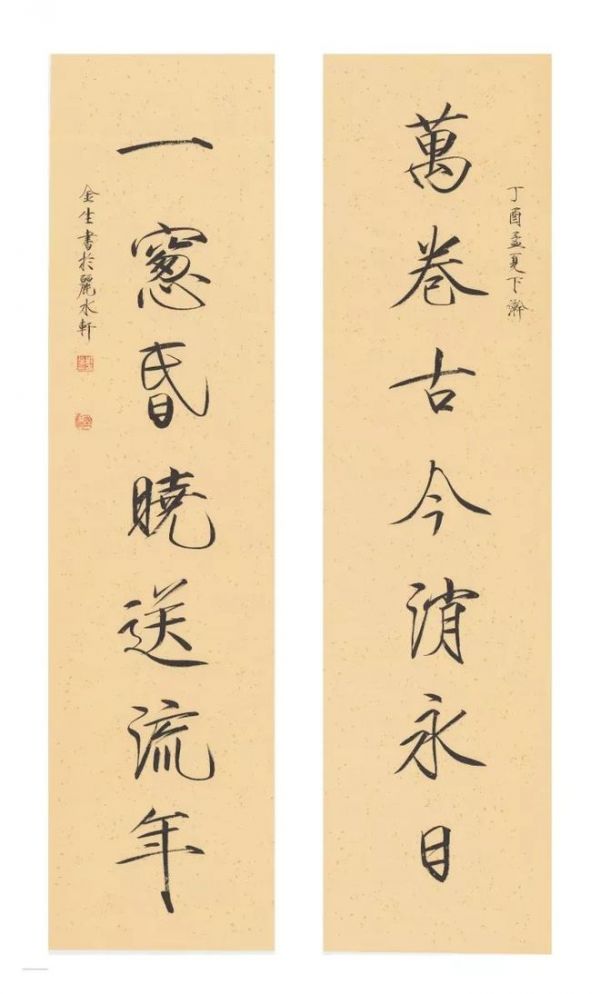 丁酉孟夏下澣
萬卷古今消永日
一窻昏曉送流年
金生書於麗水軒